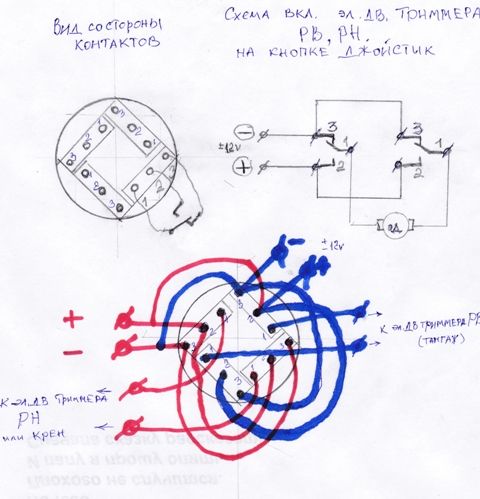 Вид со стороны
контактов
Схема вкл. эл.дв. триммера
РВ, РН.
на кнопке джойстик
3
2
1
3
2
1
3
2
1
3
2
1
−
±12v
+
3
1
2
3
1
2
эд
− ±12v
+
+
−
3
2
1
3
2
1
3
2
1
3
2
1
к эл.дв триммера РВ
(тангаж)
к эл.дв триммера
РН
или крен